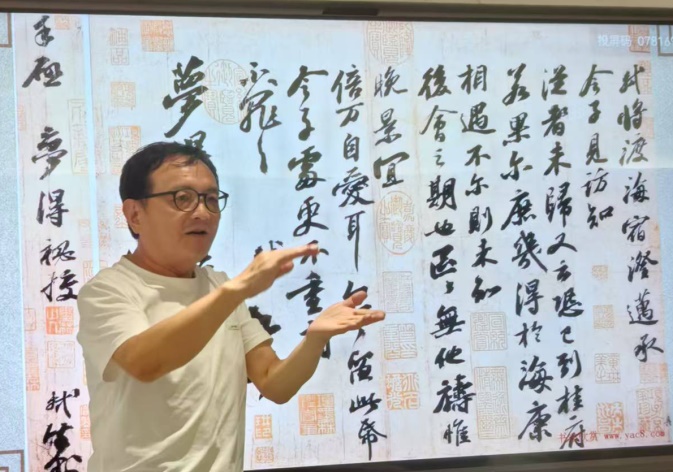 投屏码 07816
軾將渡海宿澄邁承
令子見訪知
從者未歸又云恐已到桂府
若果尔庶幾得於海康
相遇不尔則未知
後會之期也區々無他禱惟
晚景宜
倍万自愛耳 留此帋
令子處更不重
不罪々
夢
手啓 夢得秘校 軾
www.yac8.com